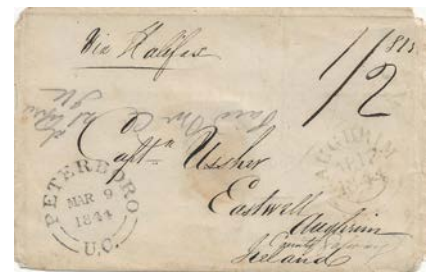 Via Halifax
1/2
Captn Ussher
Eastwell
Aughrim
County
Ireland
PETERBORO
MAR 9
1844
U.C.
AUGHRIM
1844